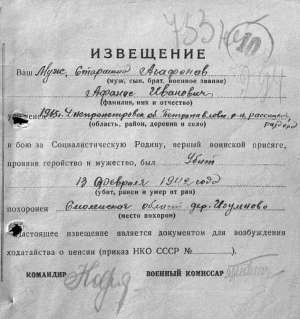 ИЗВЕЩЕНИЕ
Ваш Муж, Старшина Агафонов
(муж, сын, брат, военное звание)
Афанас Иванович
(фамилия, имя и отчество)
Днепропетровс об Петропавлов р-н
(область, район, деревня и село)
в бою за Социалистическую Родину, верный воинской присяге,
проявив геройство и мужество, был Убит
13 февраля 1942 года
(убит, ранен и умер от ран)
похоронен Смоленской област дер.
(место похорон)
Настоящее извещение является документом для возбуждения
ходатайства о пенсии (приказ НКО СССР №
КОМАНДИР
ВОЕННЫЙ КОМИССАР